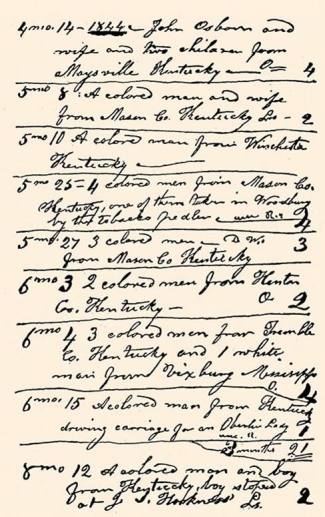 4 mo. 14 – 1844 – John Osborn and
wife and two children from
Maysville Kentucky – O= 4
5 mo 8: A colored man and wife
from Mason Co. Kentucky Ls – 2
5 mo 10 A colored man from Winchester
Kentucky
5 mo 25 = 4 colored men from Mason Co.
Kentucky, one of them taken in Woodbury
by the tobacco pedler 4
5 mo. 27 3 colord men, D W. 3
from Mason Co Kentucky
6 mo 3 2 colored men from Kenton
Co. Kentucky – O. 2
6 mo 4 3 colored men from Tremble
Co. Kentucky and 1 white
man from Vixburg Missisipp
O. 4
6 mo. 15 A colored man from Kentucky
driving carriage for an Oberlin Lady 1
3 months 21
8 mo 12 A colored man and boy
from Kentucky, boy stoped
at J. J. Ls. 2